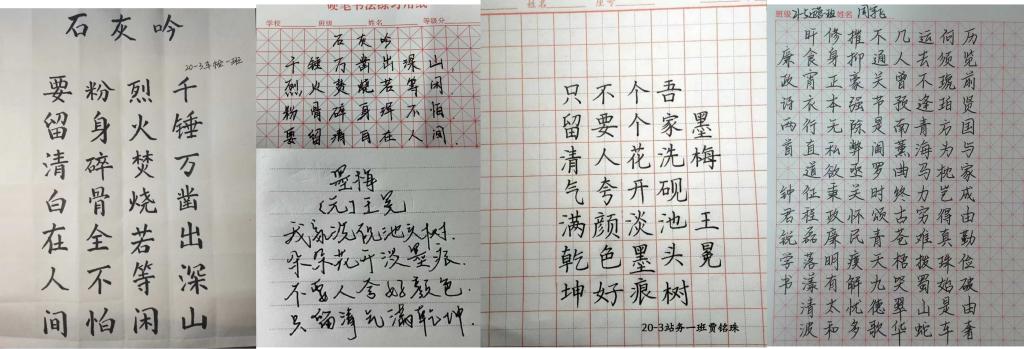 石灰吟
20-3车检一班
千锤万凿出深山
烈火焚烧若等闲
粉身碎骨全不怕
要留清白在人间
硬笔书法练习用纸
学校 班级 姓名 等级分
石灰吟
千锤万凿出深山.
烈火焚烧若等闲
粉骨碎身浑不怕
要留清自在人间.
墨梅
(元)王冕
我家洗砚池头树.
朵朵花开淡墨痕.
不要人夸好颜色.
只留清气满乾坤.
姓名 座号
墨梅 王冕
吾家洗砚池头树
个个花开淡墨痕
不要人夸颜色好
只留清气满乾坤
20-3站务一班贾铭珠
班级 姓名
历览前贤国与家成由勤位破由奢
何须琥珀方为枕岂得真珠始是车
运去不逢青海马力穷难拔蜀山蛇
几人曾预南薰曲终古苍梧哭翠华
不通关节是阎罗时颂青天九德歌
摧抑豪强除弊丞关怀民瘼解忧多
修身正本无私欲秉政廉明有太和
旰食宵衣行直道任程磊落漾清波
廉政诗两首 钟君锐学书